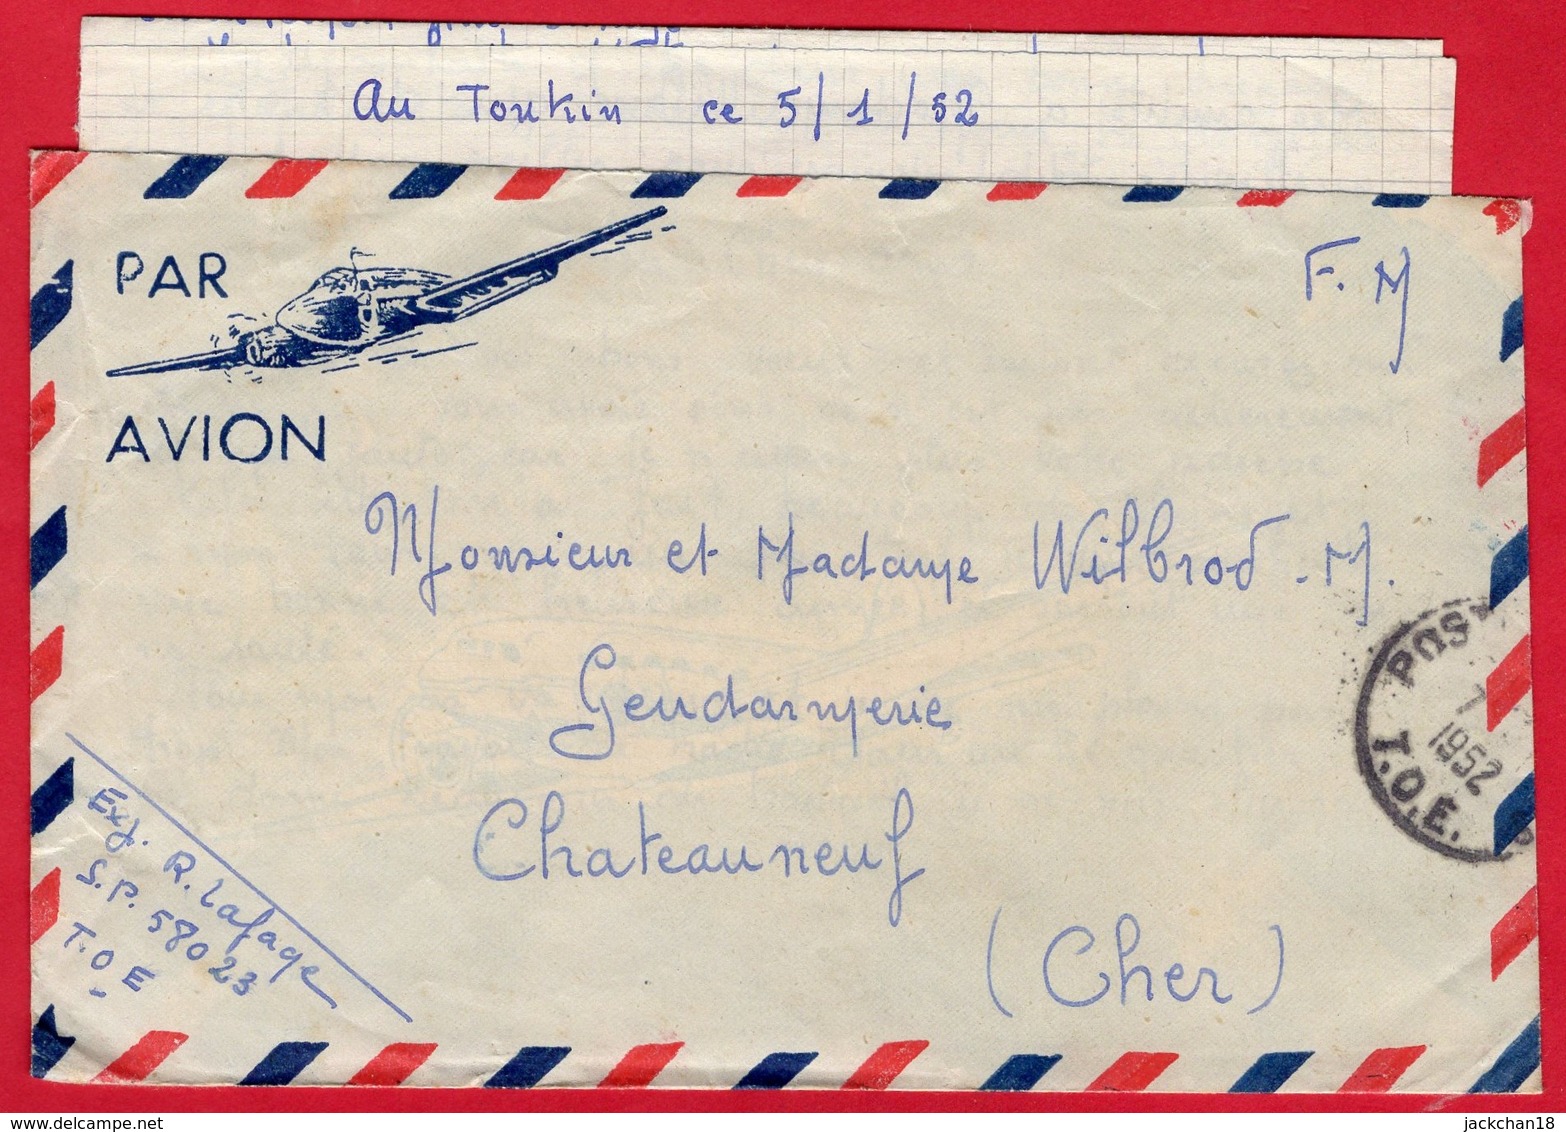 Au Tonkin ce 5/1/52
PAR
AVION
F. M
Monsieur et Madame Wilbrod . M.
Gendarmerie
Chateauneuf
(Cher)
Exp. R. Lafage
S.P. 58023
T.O E
POST
7
1952
T.O.E.
jackchan18